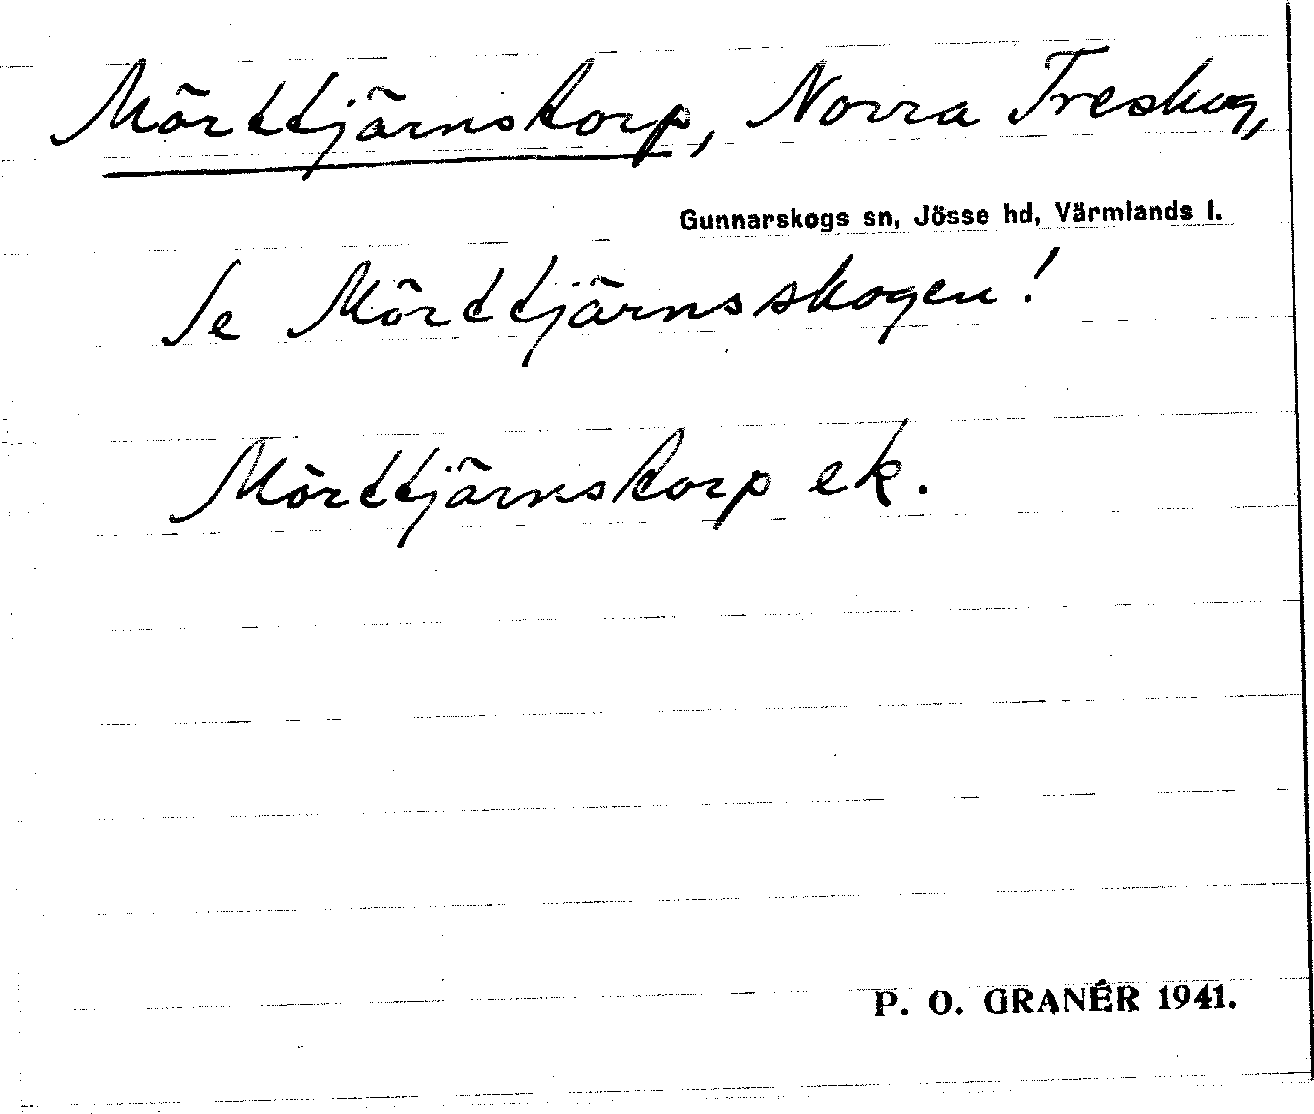 Mörttjärnstorp, Norra Treskog,
Gunnarskogs sn, Jösse hd, Värmlands l.
Se Mörttjärnsskogen!
Mörttjärnstorp ek.
P. O. GRANÉR 1941.